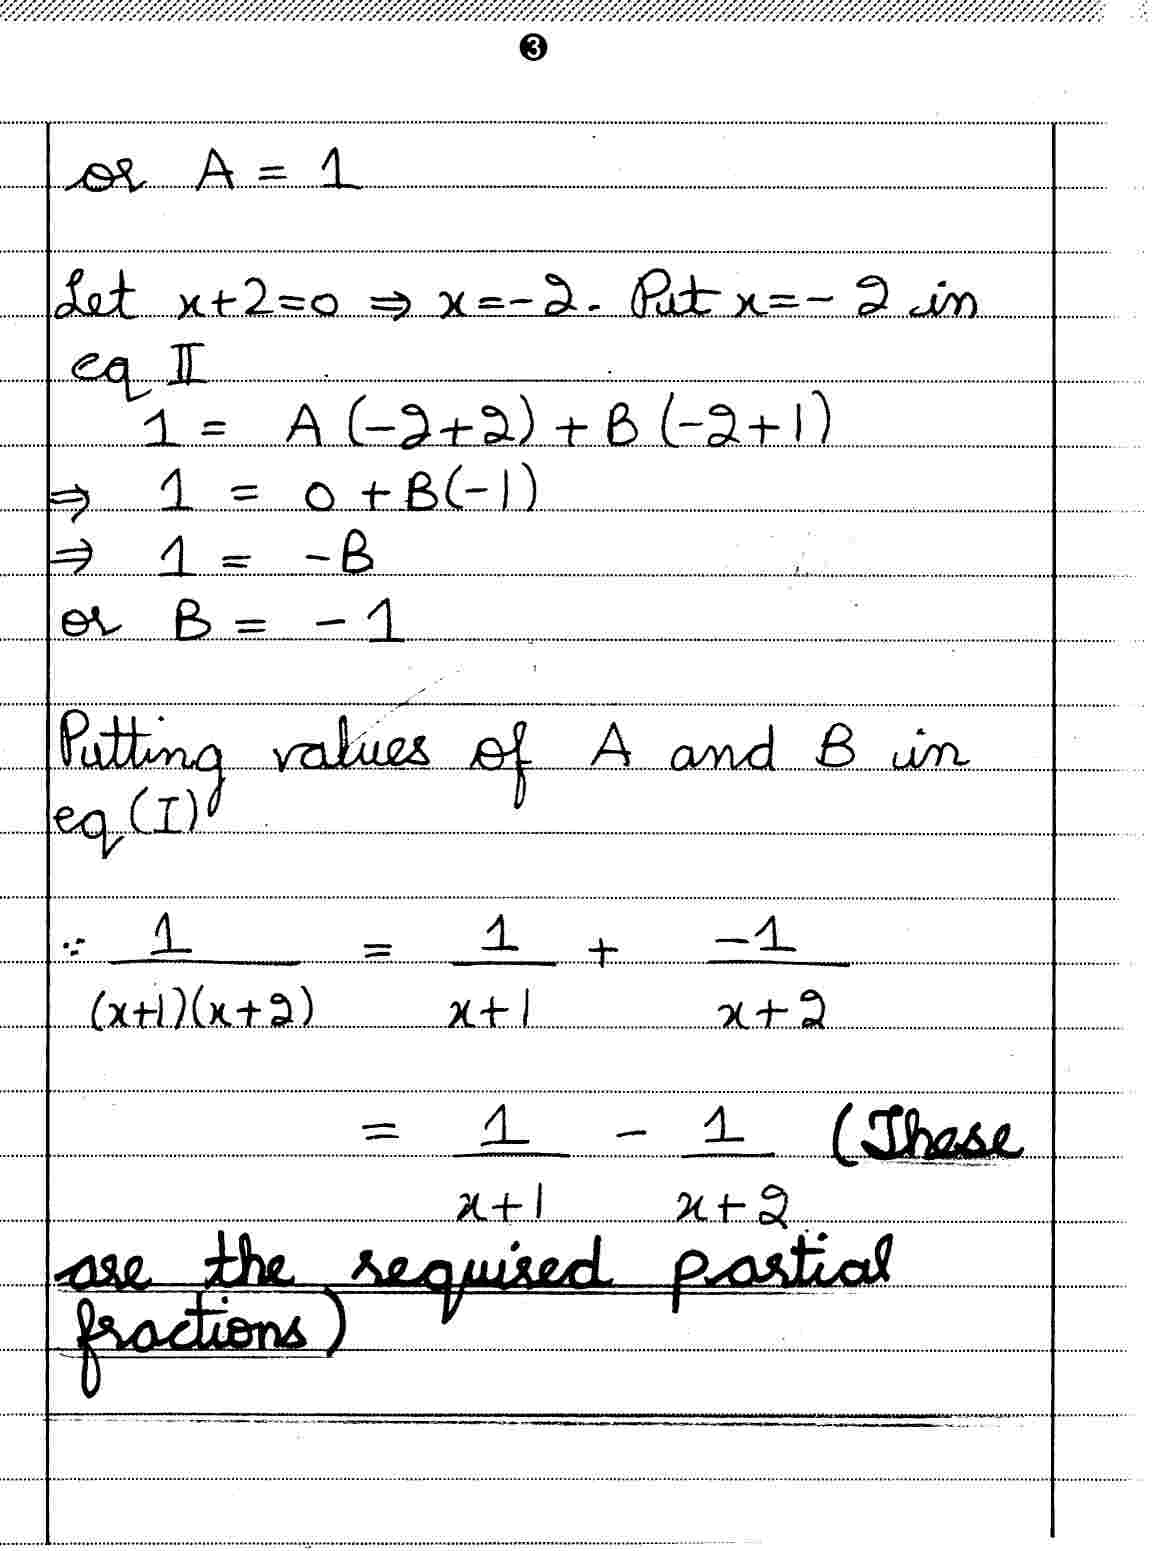 3
or A = 1
Let x+2=0 ⇒ x=-2. Put x=-2 in
eq II
1 = A (-2+2) + B (-2+1)
⇒ 1 = 0 + B(-1)
⇒ 1 = -B
or B = -1
Putting values of A and B in
eq (I)
∵ 1/((x+1)(x+2)) = 1/(x+1) + -1/(x+2)
= 1/(x+1) - 1/(x+2) (These
are the required partial
fractions)